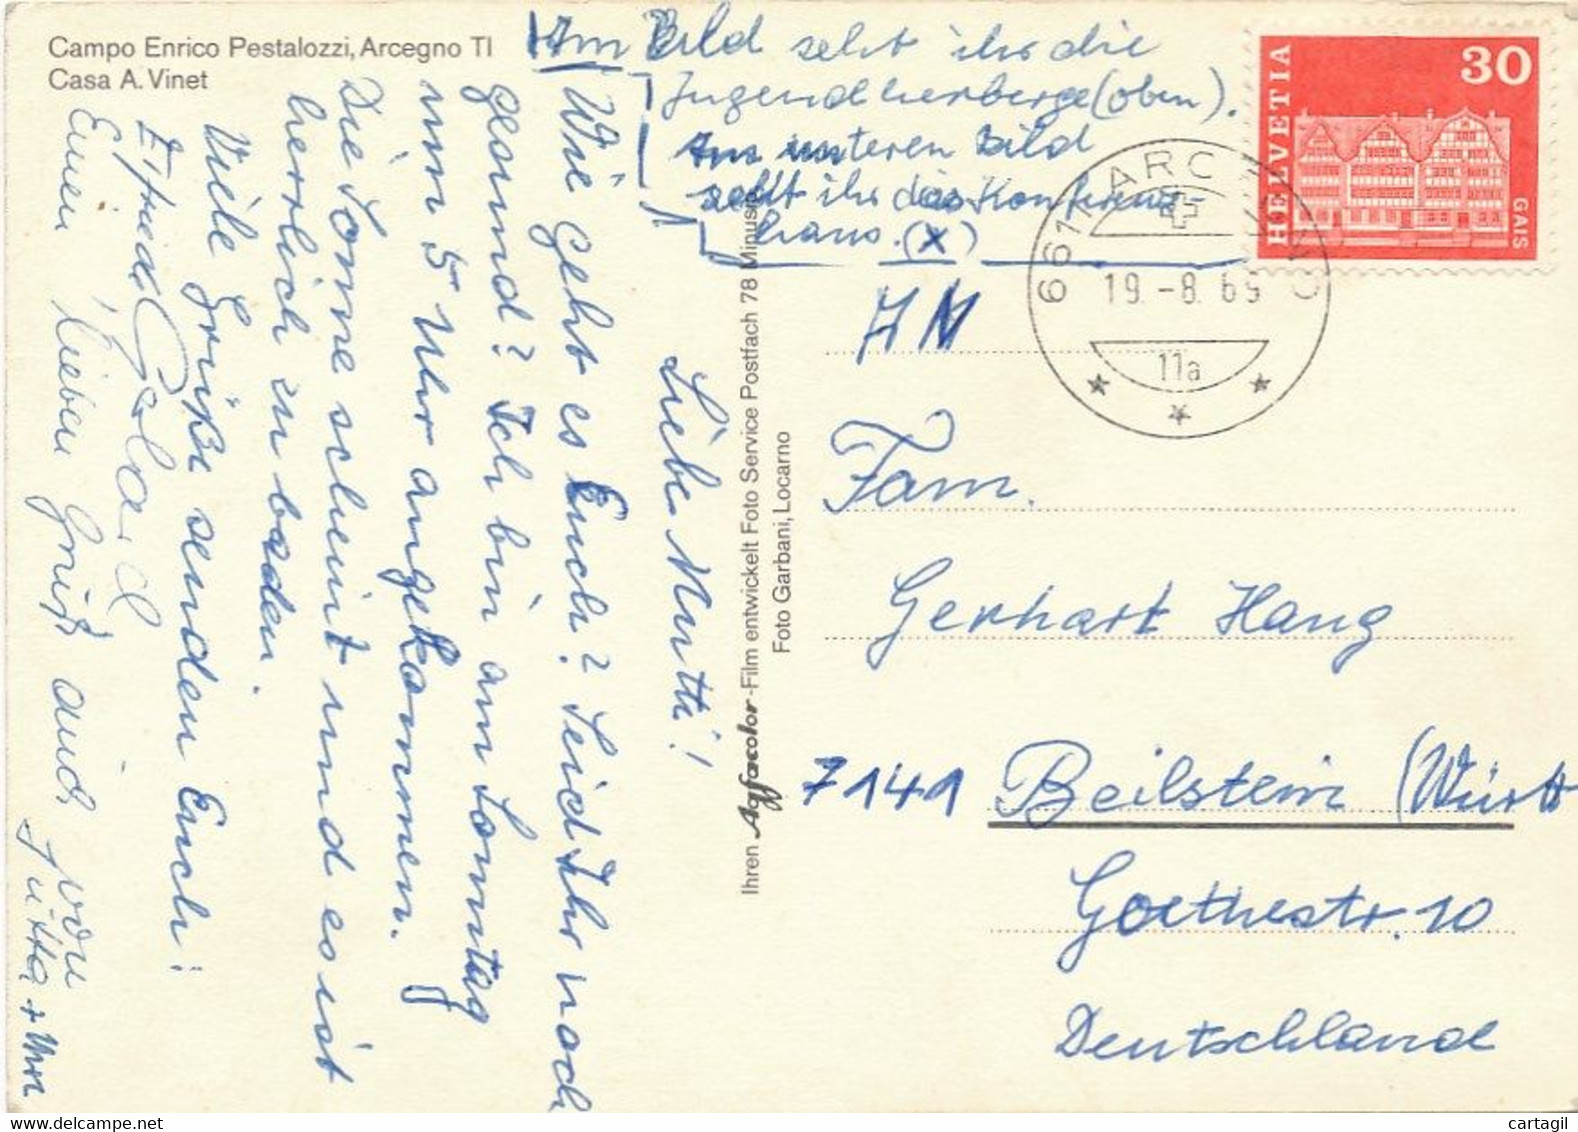 Campo Enrico Pestalozzi, Arcegno TI
Casa A. Vinet
Im Bild seht ihr die
Jugendherberge (oben).
Im unteren Bild
seht ihr das Konferenz-
haus. (X)
Liebe Mutti!
Wie geht es Euch? Seid Ihr noch
gesund? Ich bin am Sonntag
um 5 Uhr angekommen.
Die Sonne scheint und es ist
herrlich zu baden.
Viele Grüße senden Euch:
Elfriede Gerhard
Einen lieben Gruß auch von
Jutta +
Ihren Agfacolor-Film entwickelt Foto Service Postfach 78 Minusio
Foto Garbani, Locarno
HELVETIA
30
GAIS
6611 ARCEGNO
19.-8.69
11a
An
Fam.
Gerhart Haug
7141 Beilstein (Württ
Goethestr. 10
Deutschland
www.delcampe.net
cartagil